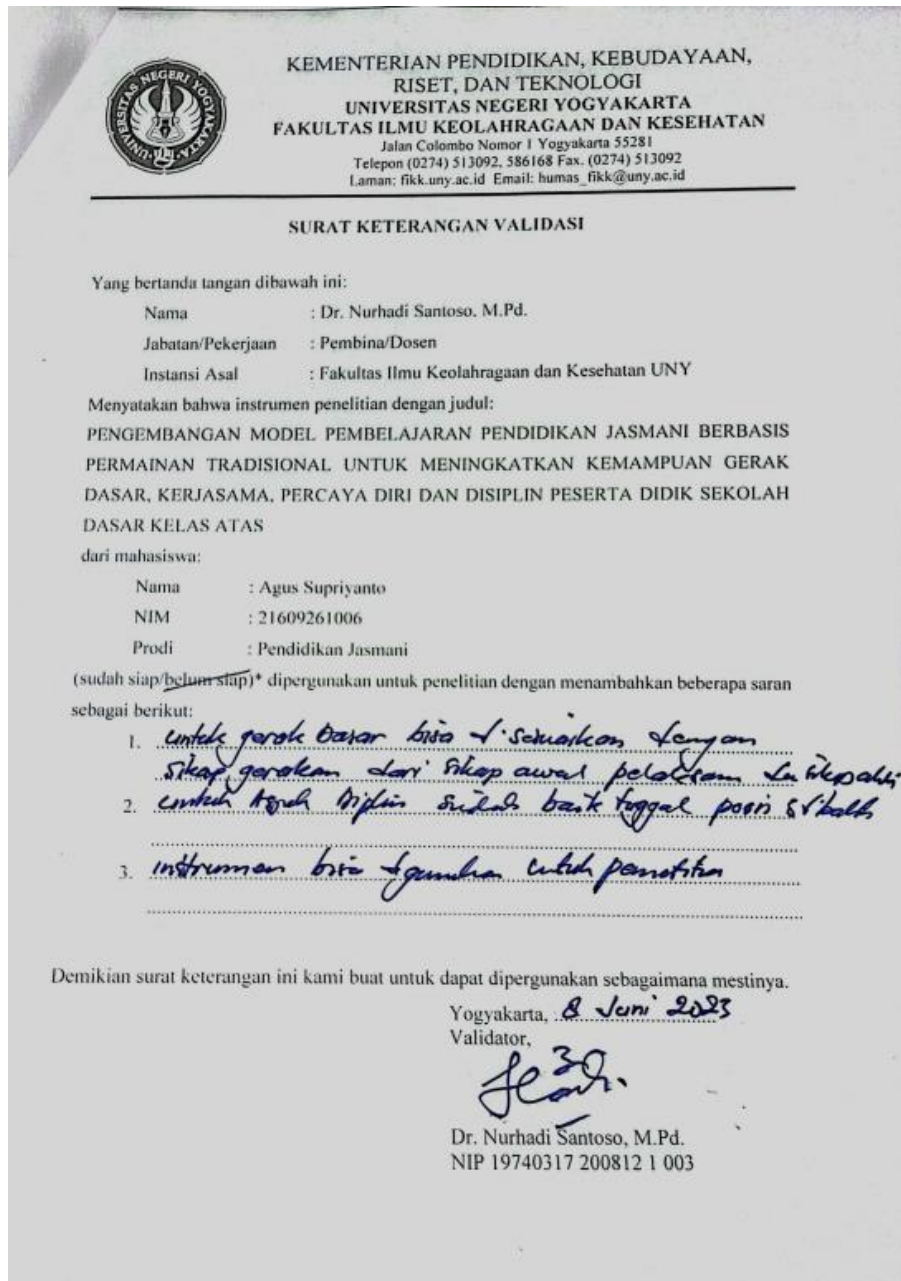 UNIVERSITAS NEGERI YOGYAKARTA
KEMENTERIAN PENDIDIKAN, KEBUDAYAAN,
RISET, DAN TEKNOLOGI
UNIVERSITAS NEGERI YOGYAKARTA
FAKULTAS ILMU KEOLAHRAGAAN DAN KESEHATAN
Jalan Colombo Nomor 1 Yogyakarta 55281
Telepon (0274) 513092, 586168 Fax. (0274) 513092
Laman: fikk.uny.ac.id Email: humas_fikk@uny.ac.id
SURAT KETERANGAN VALIDASI
Yang bertanda tangan dibawah ini:
Nama : Dr. Nurhadi Santoso. M.Pd.
Jabatan/Pekerjaan : Pembina/Dosen
Instansi Asal : Fakultas Ilmu Keolahragaan dan Kesehatan UNY
Menyatakan bahwa instrumen penelitian dengan judul:
PENGEMBANGAN MODEL PEMBELAJARAN PENDIDIKAN JASMANI BERBASIS
PERMAINAN TRADISIONAL UNTUK MENINGKATKAN KEMAMPUAN GERAK
DASAR, KERJASAMA, PERCAYA DIRI DAN DISIPLIN PESERTA DIDIK SEKOLAH
DASAR KELAS ATAS
dari mahasiswa:
Nama : Agus Supriyanto
NIM : 21609261006
Prodi : Pendidikan Jasmani
(sudah siap/belum siap)* dipergunakan untuk penelitian dengan menambahkan beberapa saran
sebagai berikut:
1. untuk gerak dasar bisa disesuaikan dengan
sikap gerakan dari sikap awal
2. untuk sudah baik tinggal
3. instrumen bisa digunakan untuk
Demikian surat keterangan ini kami buat untuk dapat dipergunakan sebagaimana mestinya.
Yogyakarta, 8 Juni 2023
Validator,
Dr. Nurhadi Santoso, M.Pd.
NIP 19740317 200812 1 003